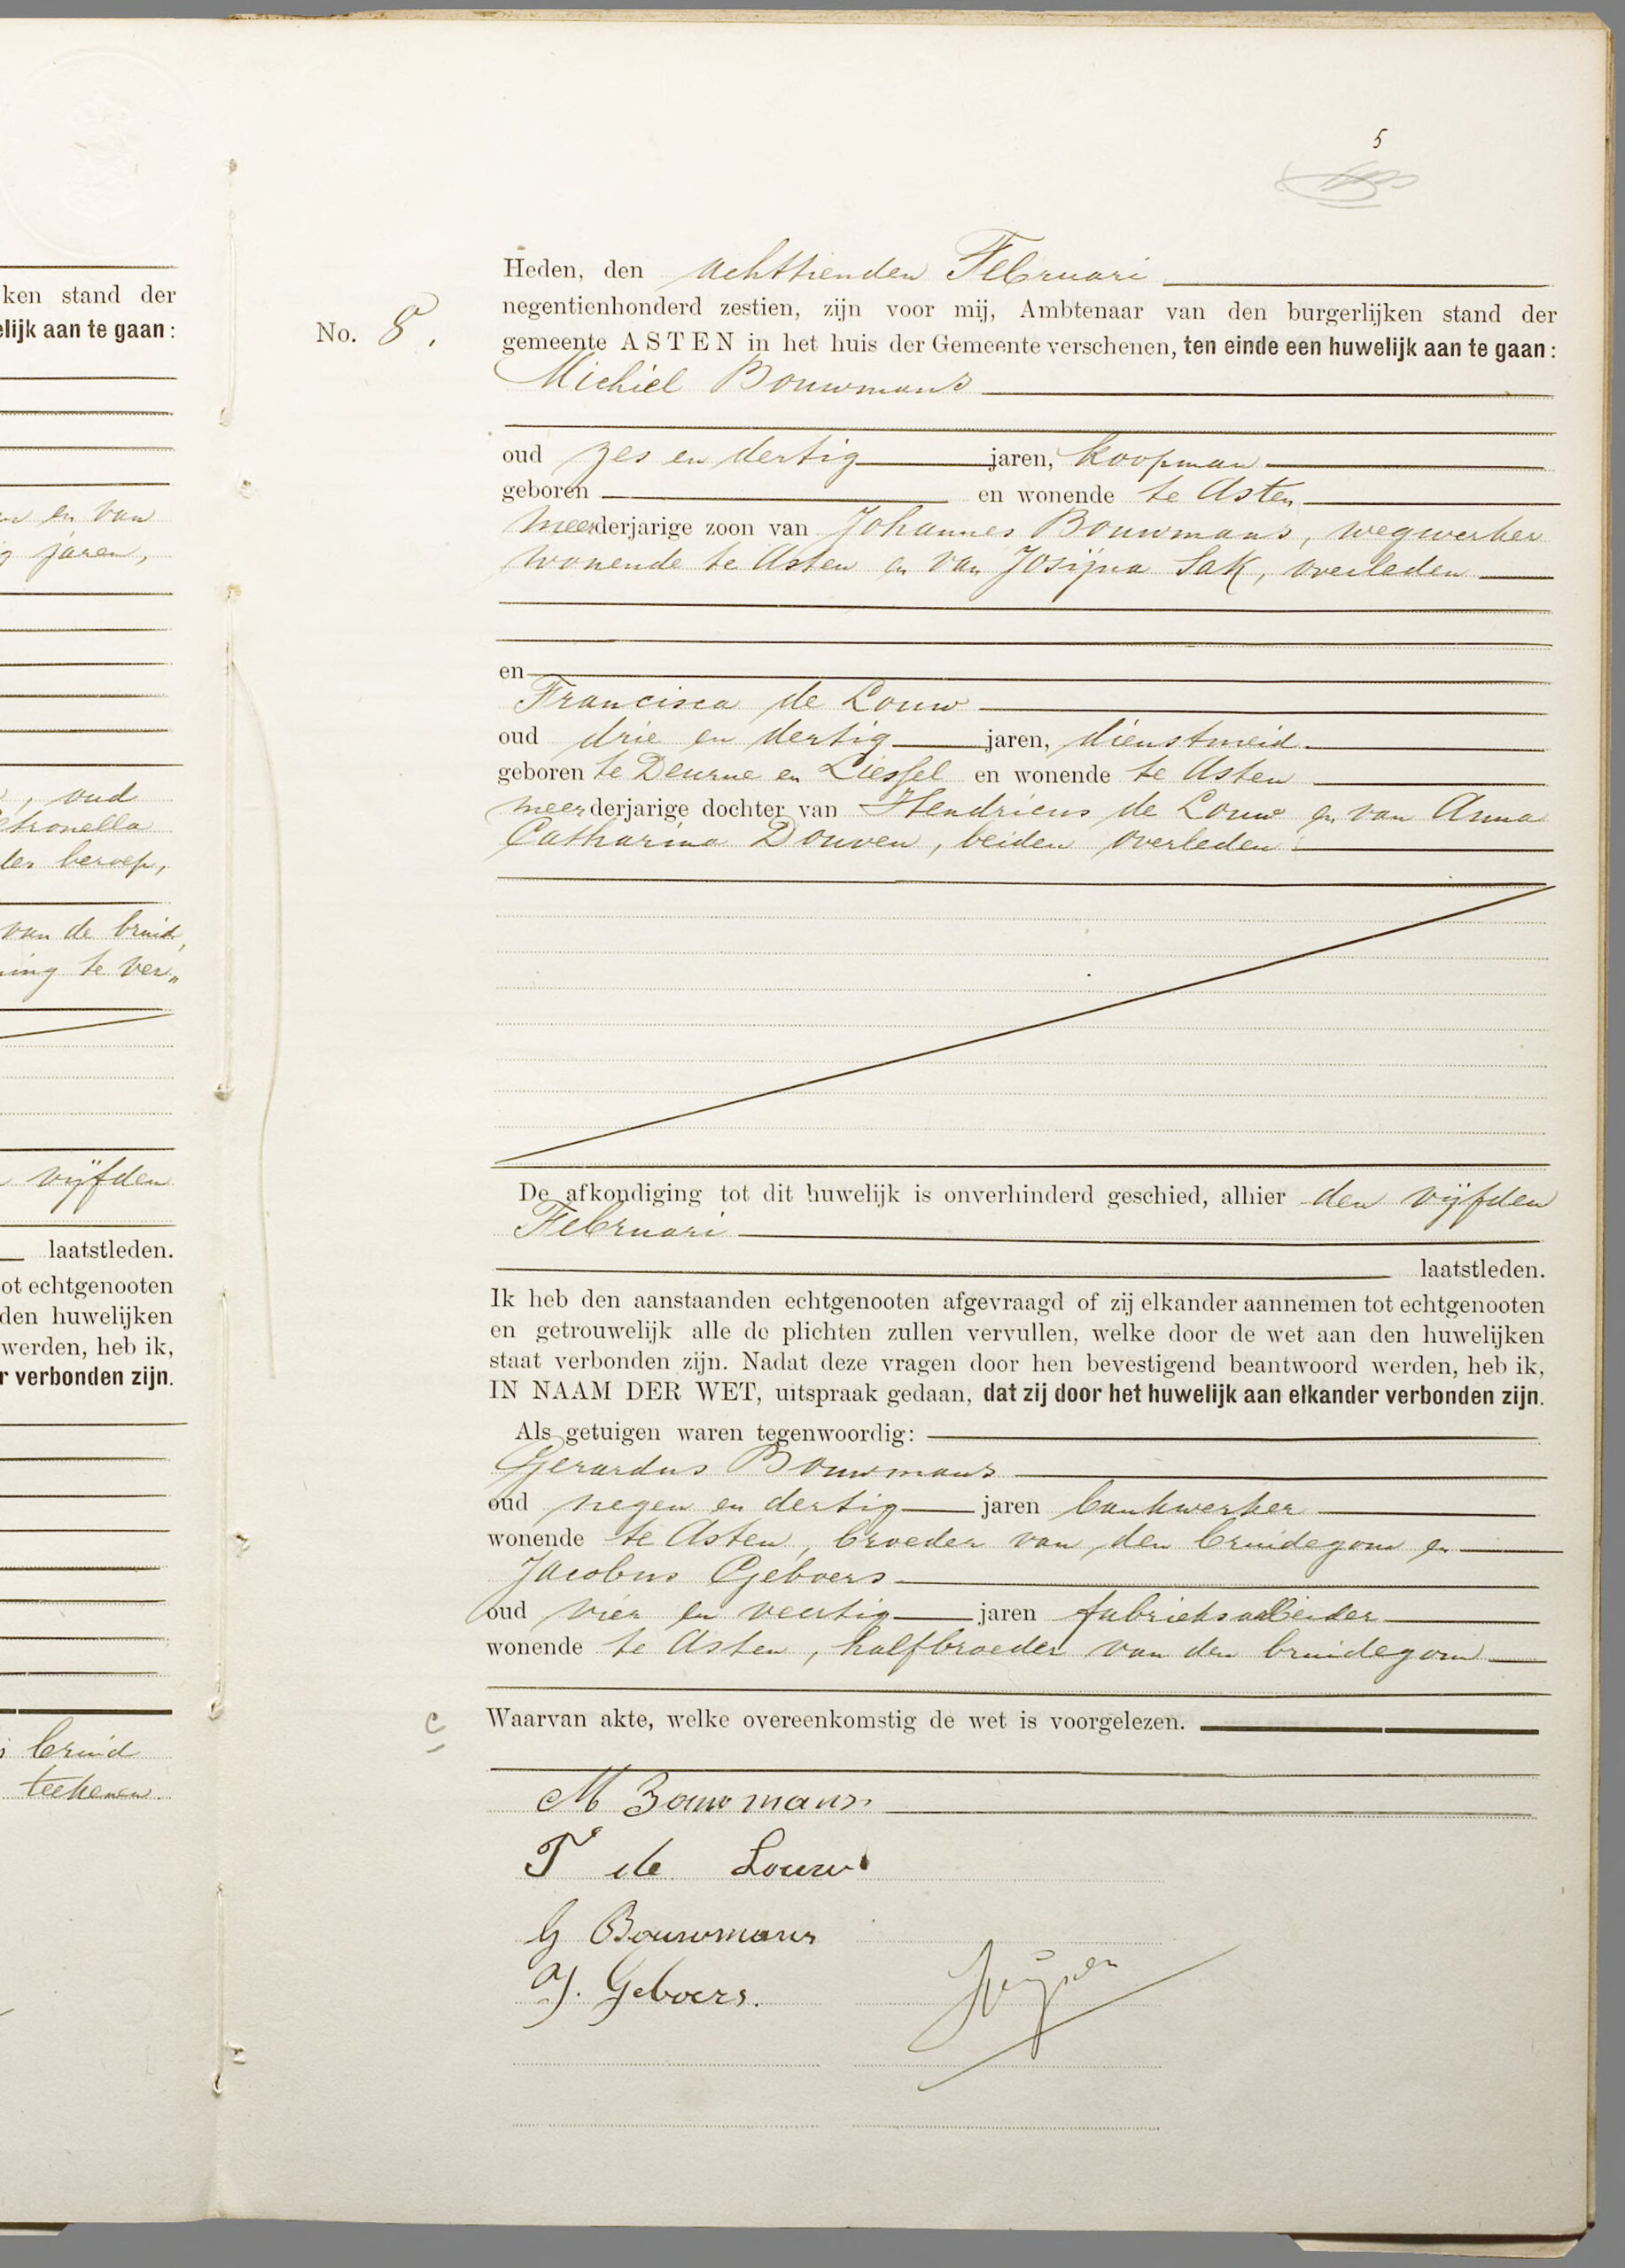 5
ken stand der
elijk aan te gaan:
en van
jaren,
, oud
etronella
der beroep,
van de bruid,
ning te ver„
vijfden
laatstleden.
ot echtgenooten
den huwelijken
werden, heb ik,
r verbonden zijn.
bruid
teekenen.
Heden, den achttienden Februari
negentienhonderd zestien, zijn voor mij, Ambtenaar van den burgerlijken stand der
No. 8.
gemeente ASTEN in het huis der Gemeente verschenen, ten einde een huwelijk aan te gaan:
Michiel Bouwmans
oud zes en dertig jaren, koopman
geboren en wonende te Asten
meerderjarige zoon van Johannes Bouwmans, wegwerker
wonende te Asten en van Josijna Sak, overleden
en
Francisca de Louw
oud drie en dertig jaren, dienstmeid
geboren te Deurne en Liessel en wonende te Asten
meerderjarige dochter van Hendricus de Louw en van Anna
Catharina Douven, beiden overleden
De afkondiging tot dit huwelijk is onverhinderd geschied, alhier den vijfden
Februari
laatstleden.
Ik heb den aanstaanden echtgenooten afgevraagd of zij elkander aannemen tot echtgenooten
en getrouwelijk alle de plichten zullen vervullen, welke door de wet aan den huwelijken
staat verbonden zijn. Nadat deze vragen door hen bevestigend beantwoord werden, heb ik,
IN NAAM DER WET, uitspraak gedaan, dat zij door het huwelijk aan elkander verbonden zijn.
Als getuigen waren tegenwoordig:
Gerardus Bouwmans
oud negen en dertig jaren bankwerker
wonende te Asten, broeder van den bruidegom en
Jacobus Geboers
oud vier en veertig jaren fabrieksarbeider
wonende te Asten, halfbroeder van den bruidegom
Waarvan akte, welke overeenkomstig de wet is voorgelezen.
M Bouwmans
F de Louw
G Bouwmans
J. Geboers.